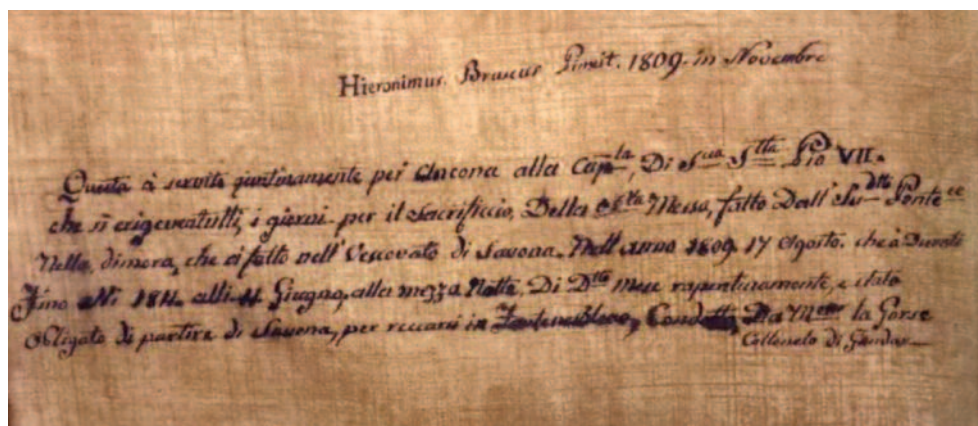 Hieronimus. Bruscus Pinxit. 1809. in Novembre
Questa à servito per Ancona alla Capla, Di Sua Stta Pio VII.
che si erigeva tutti, i giorni per il Sacrificio, Della Messa, fatto Dall' Pontece
Nella, dimora, che à fatto nell' Vescovato di Savona. Nell' anno 1809. 17 Agosto. che à Durato
Fino alli Giugno, alla mezza Notte, Di Dto mese repentinamente, e stato
Obligato di partire di Savona, per reccarsi in Fontenableau, la Gorse
Collonelo di Gendar